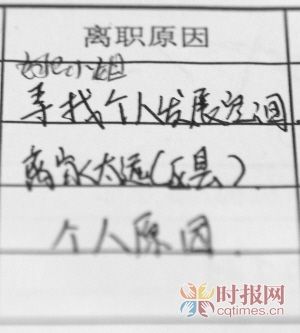 离职原因
寻找个人发展空间.
离家太远(区县).
个人原因.
时报网
cqtimes.cn